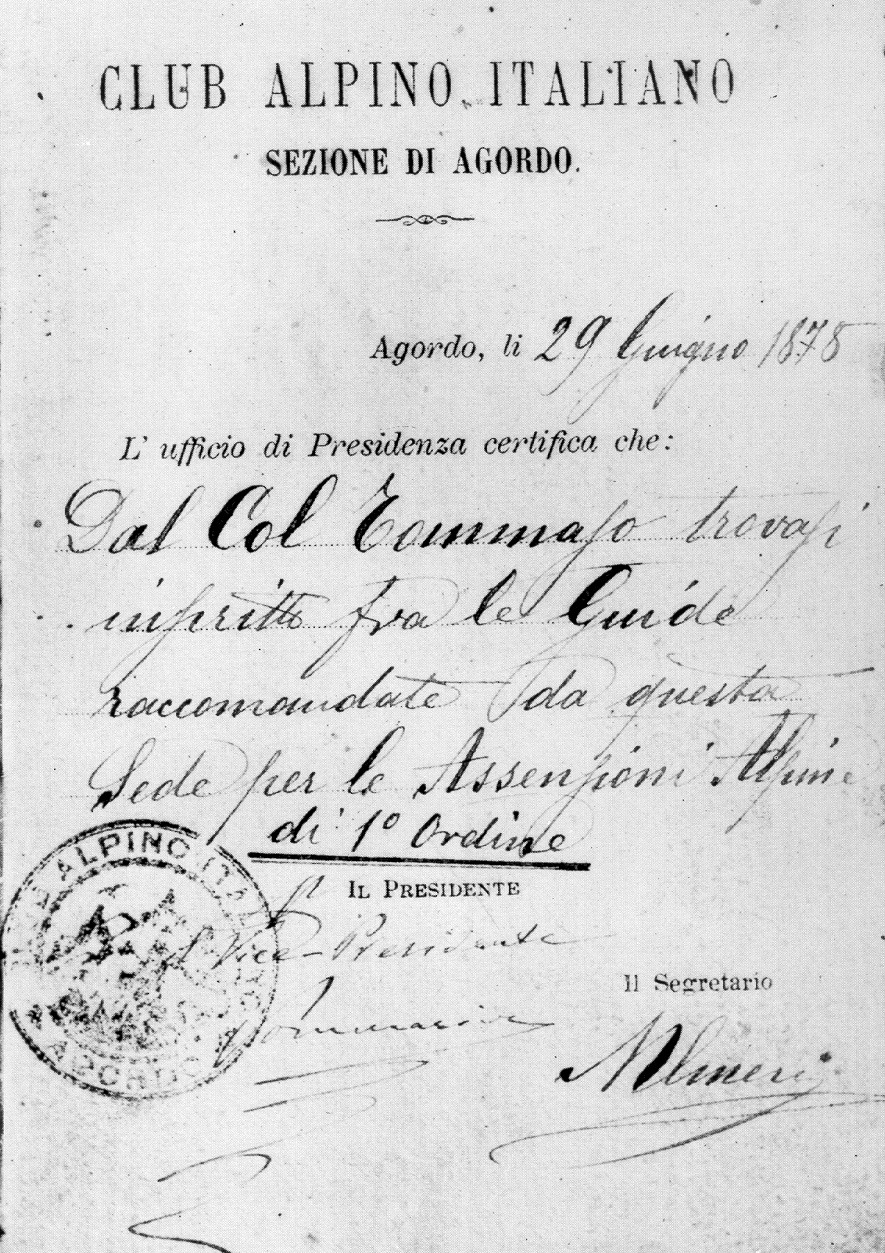 CLUB ALPINO ITALIANO
SEZIONE DI AGORDO.
Agordo, li 29 Giugno 1878
L' ufficio di Presidenza certifica che:
Dal Col Tommaso trovasi
inscritto fra le Guide
raccomandate da questa
Sede per le Assensioni Alpine
di 1º Ordine
IL PRESIDENTE
Vice-Presidente
Il Segretario
CLUB ALPINO ITA
AGORDO